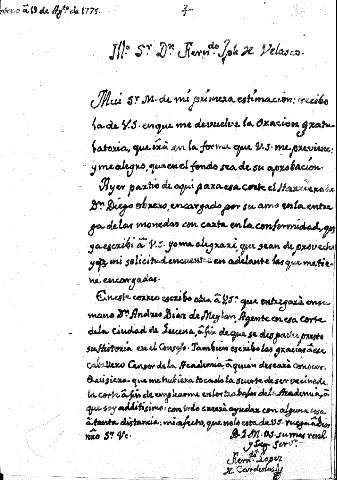 â 19 de Ag.to de 1775.
Illo. Sr. Dn. Fern.do Jph de Velasco.
Mui Sr. M. de mi primera estimacion: recibo
la de V.S. en que me devuelve la Oracion gratu-
latoria, que irá en la forma que V.S. me previene;
y me alegro, que en el fondo sea de su aprobacion.
Ayer partio de aqui para esa corte el
Dn. Diego obrero, encargado por su amo en la entre-
ga de las monedas con carta en la conformidad, que
ya escribi â V.S. yo me alegraré que sean de provecho
y mi solicitud encuentre en adelante las que me tie-
ne encargadas.
En este correo escribo otra â V.S. que entregará en su
mano Dn. Andres Diaz de Agente en esa corte
de la ciudad de Lucena, â fin de que se despache presto
su Historia en el Consejo. Tambien escribo las gracias â ese
caballero Censor de la Academia, â quien desearé conocer.
Quisiera que me hubiera tocado la suerte de ser vecino de
la corte â fin de emplearme en los trabajos de la Academia, â
que soy addictisimo: con todo creeré ayudar con alguna cosa
â tanta distancia: mi afecto, que no lo esta de V.S. ruega â Dios
B.L.M. de V.S. su mas rend.
y Seg. Serv.r
Fern.do Lopez
de Cardenas